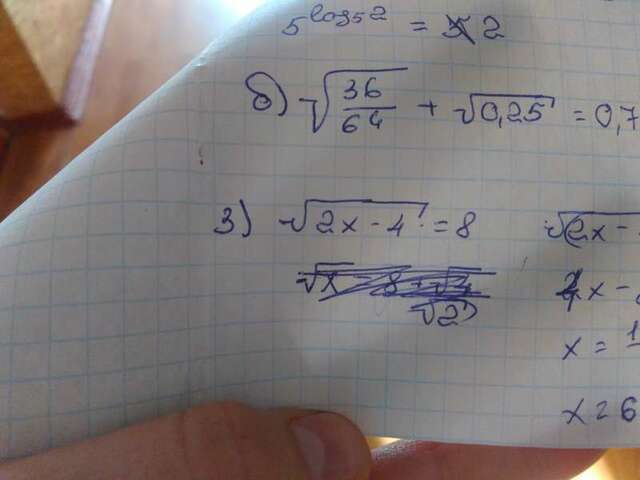 5^log₅2 = 2
б) √(36/64) + √0,25 = 0,7
3) √(2x - 4) = 8 √(2x -
x -
x = 1
x = 6